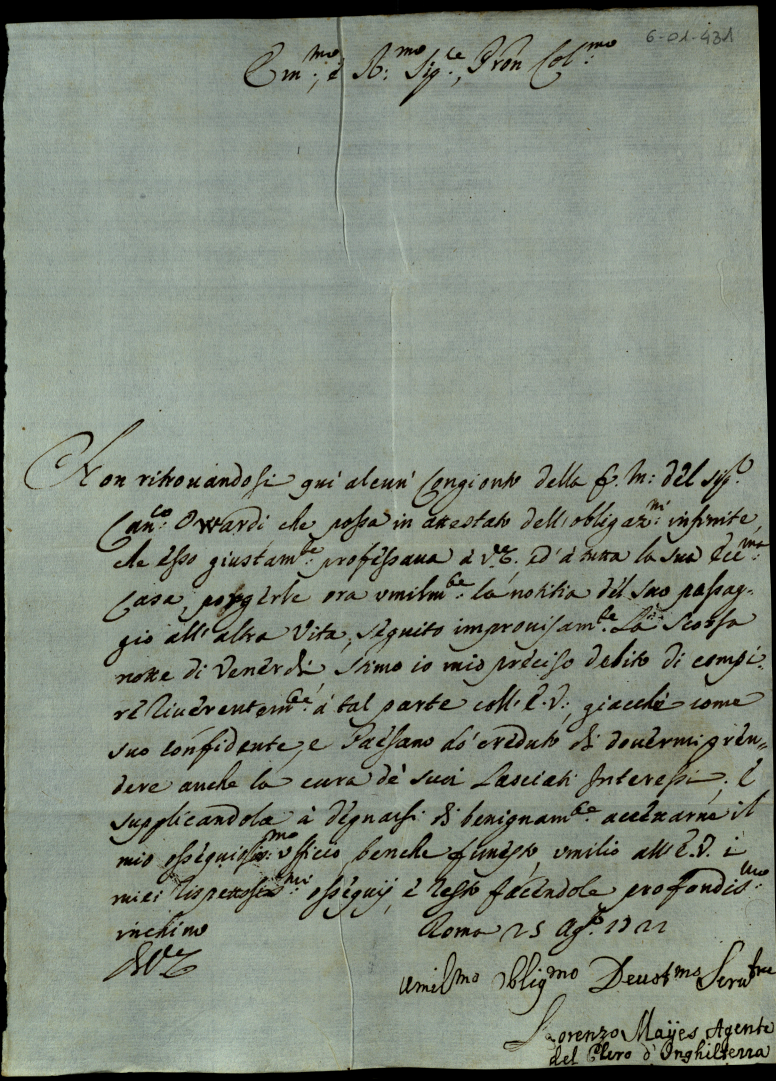 6-01-431
Em.mo, e R.mo Sig.re, Pron Col.mo
Non ritrovandosi qui alcun' Congionto della f. m: del sig.r
Can.co Owardi che possa in attestato dell'obligaz.ni infinite,
che esso giustam.te professava à V.E. ed' à tutta la sua Ecc.ma
Casa, porgerle ora umilm.te la notitia del suo passag-
gio all'altra Vita, seguito improvisam.te La scorsa
notte di Venerdi stimo io mio preciso debito di compi-
re riverentem.te à tal parte coll'E.V., giacchè come
suo confidente, e Paesano hò creduto di dovermi pren-
dere anche la cura de suoi Lasciati Interessi; E
supplicandola à degnarsi di benignam.te accettarne il
mio ossequiosis.mo ufficio, benche funesto, umilio all'E.V. i
miei rispettosis.mi ossequij, e resto facendole profondis.mo
inchino
Roma 25 Ag.to 1722
D.V.E.
Umil.mo Oblig.mo Devot.mo Serv.tre
Lorenzo Mayes Agente
del Clero d'Inghilterra